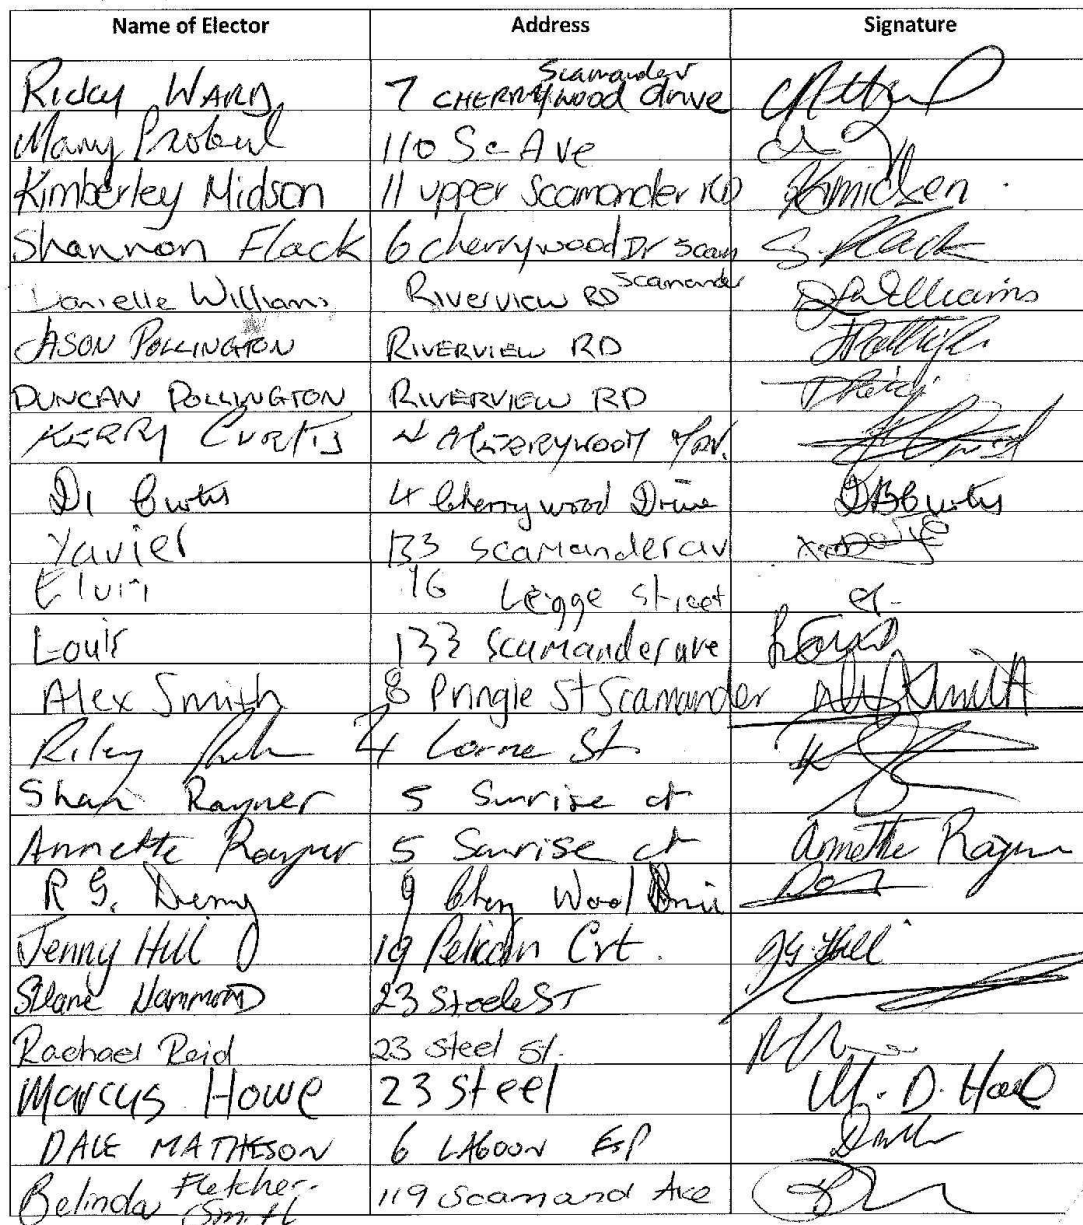 Name of Elector Address Signature
Ricky WARD 7 CHERRYWOOD drive Scamander
Mary 110 Sc Ave
Kimberley Midson 11 upper Scamander RD Kmidsen
Shannon Flack 6 cherrywood Dr Scam S. Flack
Danielle Williams Riverview RD Scamander DWilliams
JASON POLLINGTON RIVERVIEW RD
DUNCAN POLLINGTON RIVERVIEW RD
KERRY CURTIS 4
Di Curtis 4 Cherrywood Drive DB Curtis
Xavier 133 Scamander av
16 Legge street
Louis 133 Scamander ave Louis
Alex Smith 8 Pringle St Scamander
Riley 4 Lorne St.
Shan Rayner 5 Sunrise ct
Annette Rayner 5 Sunrise ct Annette Rayner
R G. Denny 9 Wood
Jenny Hill 19 Pelican Crt. JG Hill
Shane Hammond 23 Steele ST
Rachael Reid 23 Steel St.
Marcus Howe 23 Steel M. D. Howe
DALE MATHESON 6 LAGOON ESP
Belinda Fletcher-Smith 119 Scamand Ave